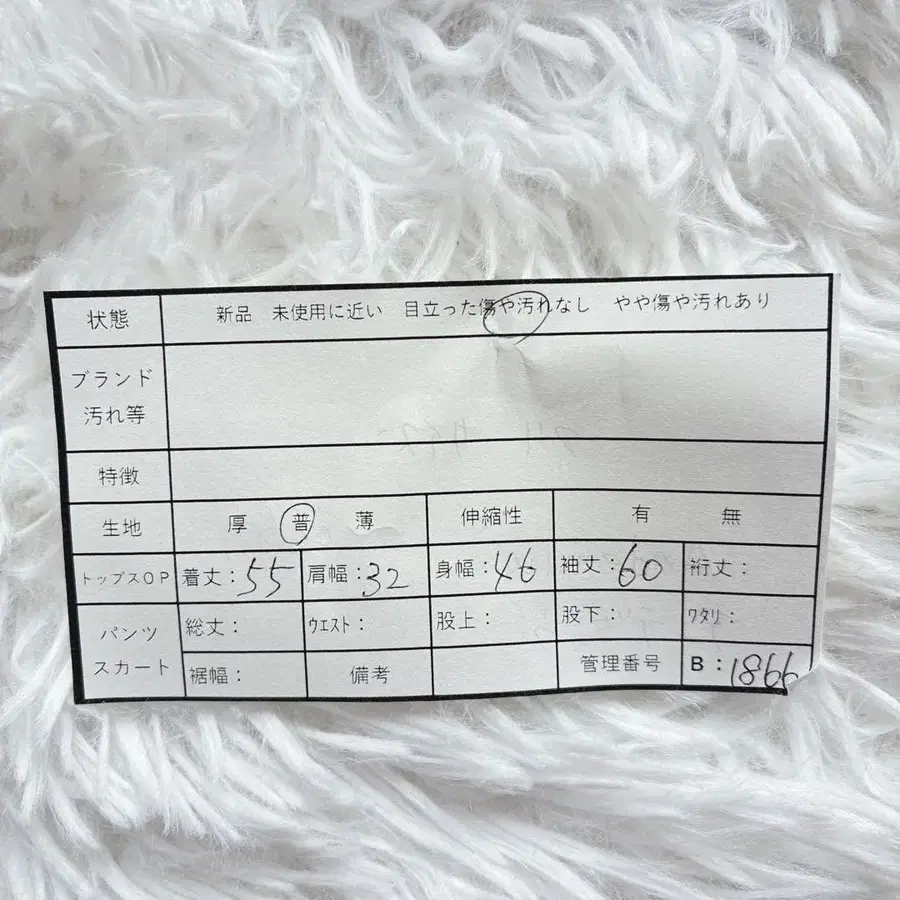 状態 新品 未使用に近い 目立った傷や汚れなし やや傷や汚れあり
ブランド
汚れ等
特徴
生地 厚 普 薄 伸縮性 有 無
トップスOP 着丈:55 肩幅:32 身幅:46 袖丈:60 裄丈:
パンツ
スカート
総丈: ウエスト: 股上: 股下: ワタリ:
裾幅: 備考 管理番号 B:1866